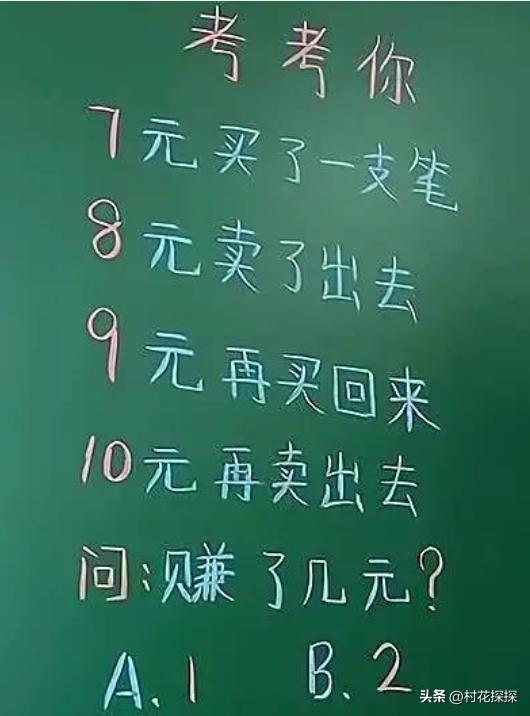 考考你
7元买了一支笔
8元卖了出去
9元再买回来
10元再卖出去
问:赚了几元?
A.1 B.2
头条 @村花探探